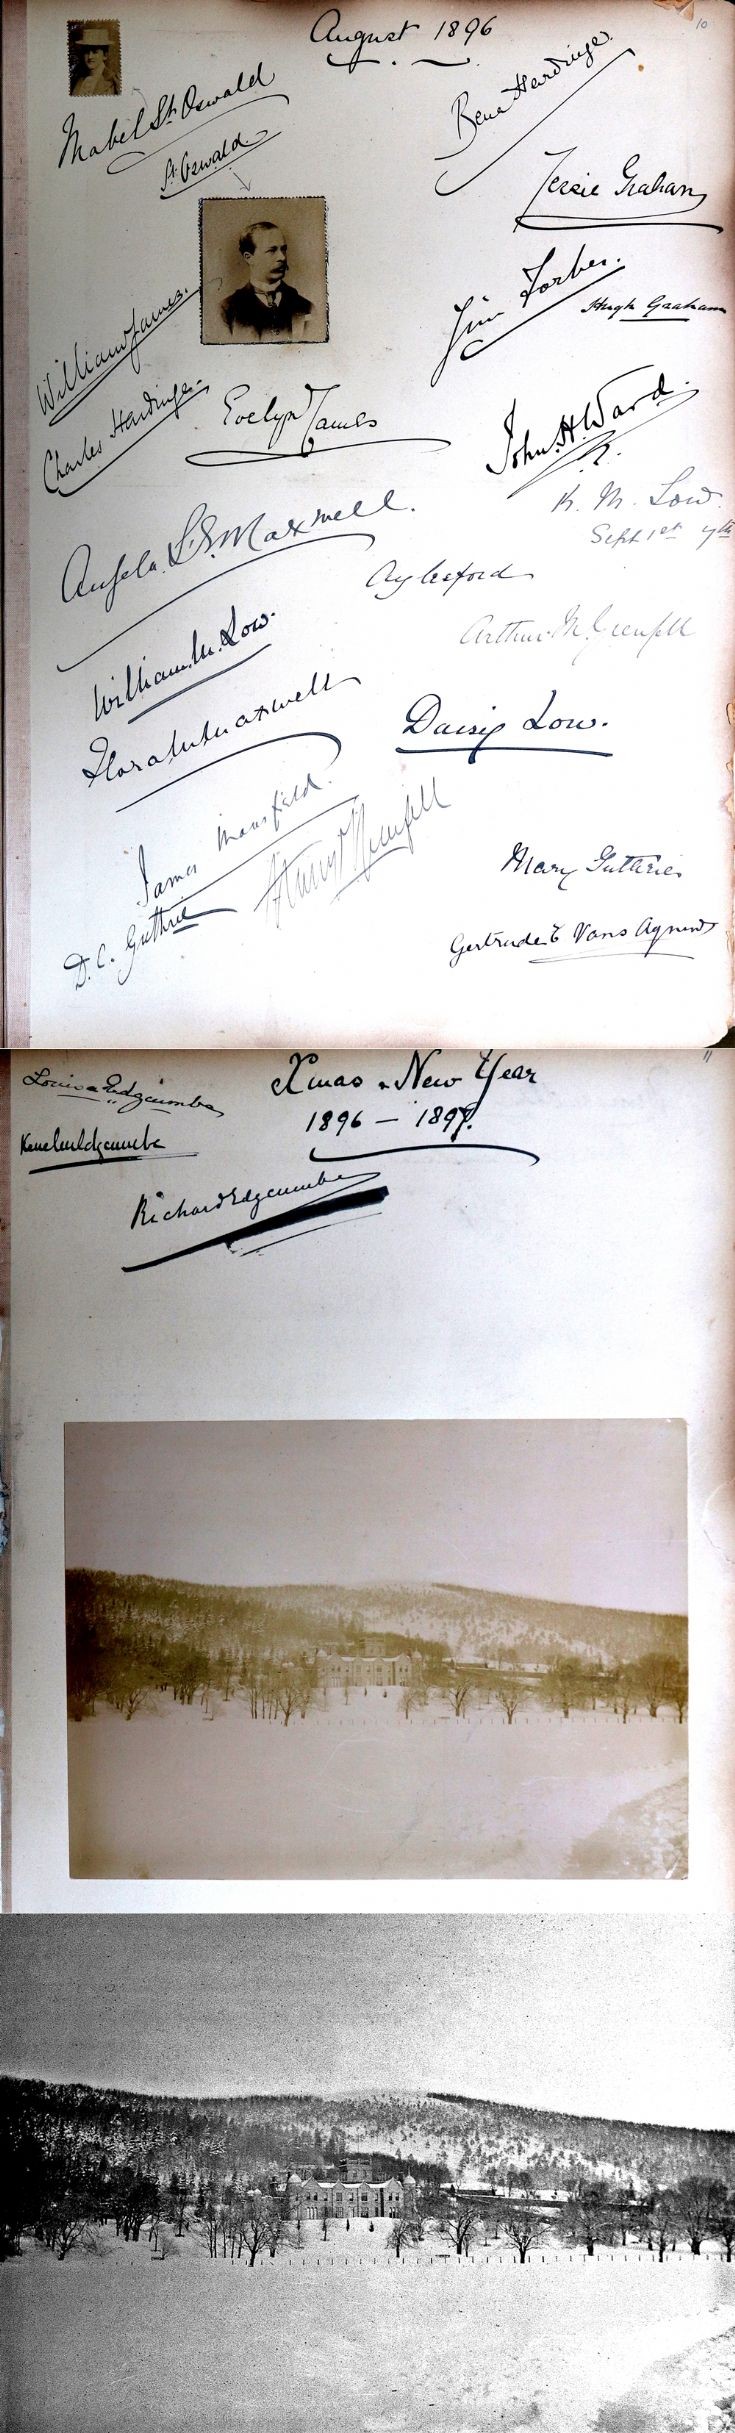 August 1896
10
Mabel St. Oswald
St. Oswald
Bena Hardinge.
Jessie Graham
William James.
Jim Forbes.
Hugh Graham
Charles Hardinge.
Evelyn James
John. H. Ward.
K. M. Low.
Sept 1st
Angela L. S. Maxwell.
Aylesford
Arthur M. Grenfell
William. M. Low.
Flora M Maxwell
Daisy Low.
James Mansfield.
Grenfell
Mary Guthrie.
D. C. Guthrie
Gertrude E Vans Agnew
11
Louisa Edgcumbe
Xmas & New Year
1896 — 1897.
Edgcumbe
Richard Edgcumbe